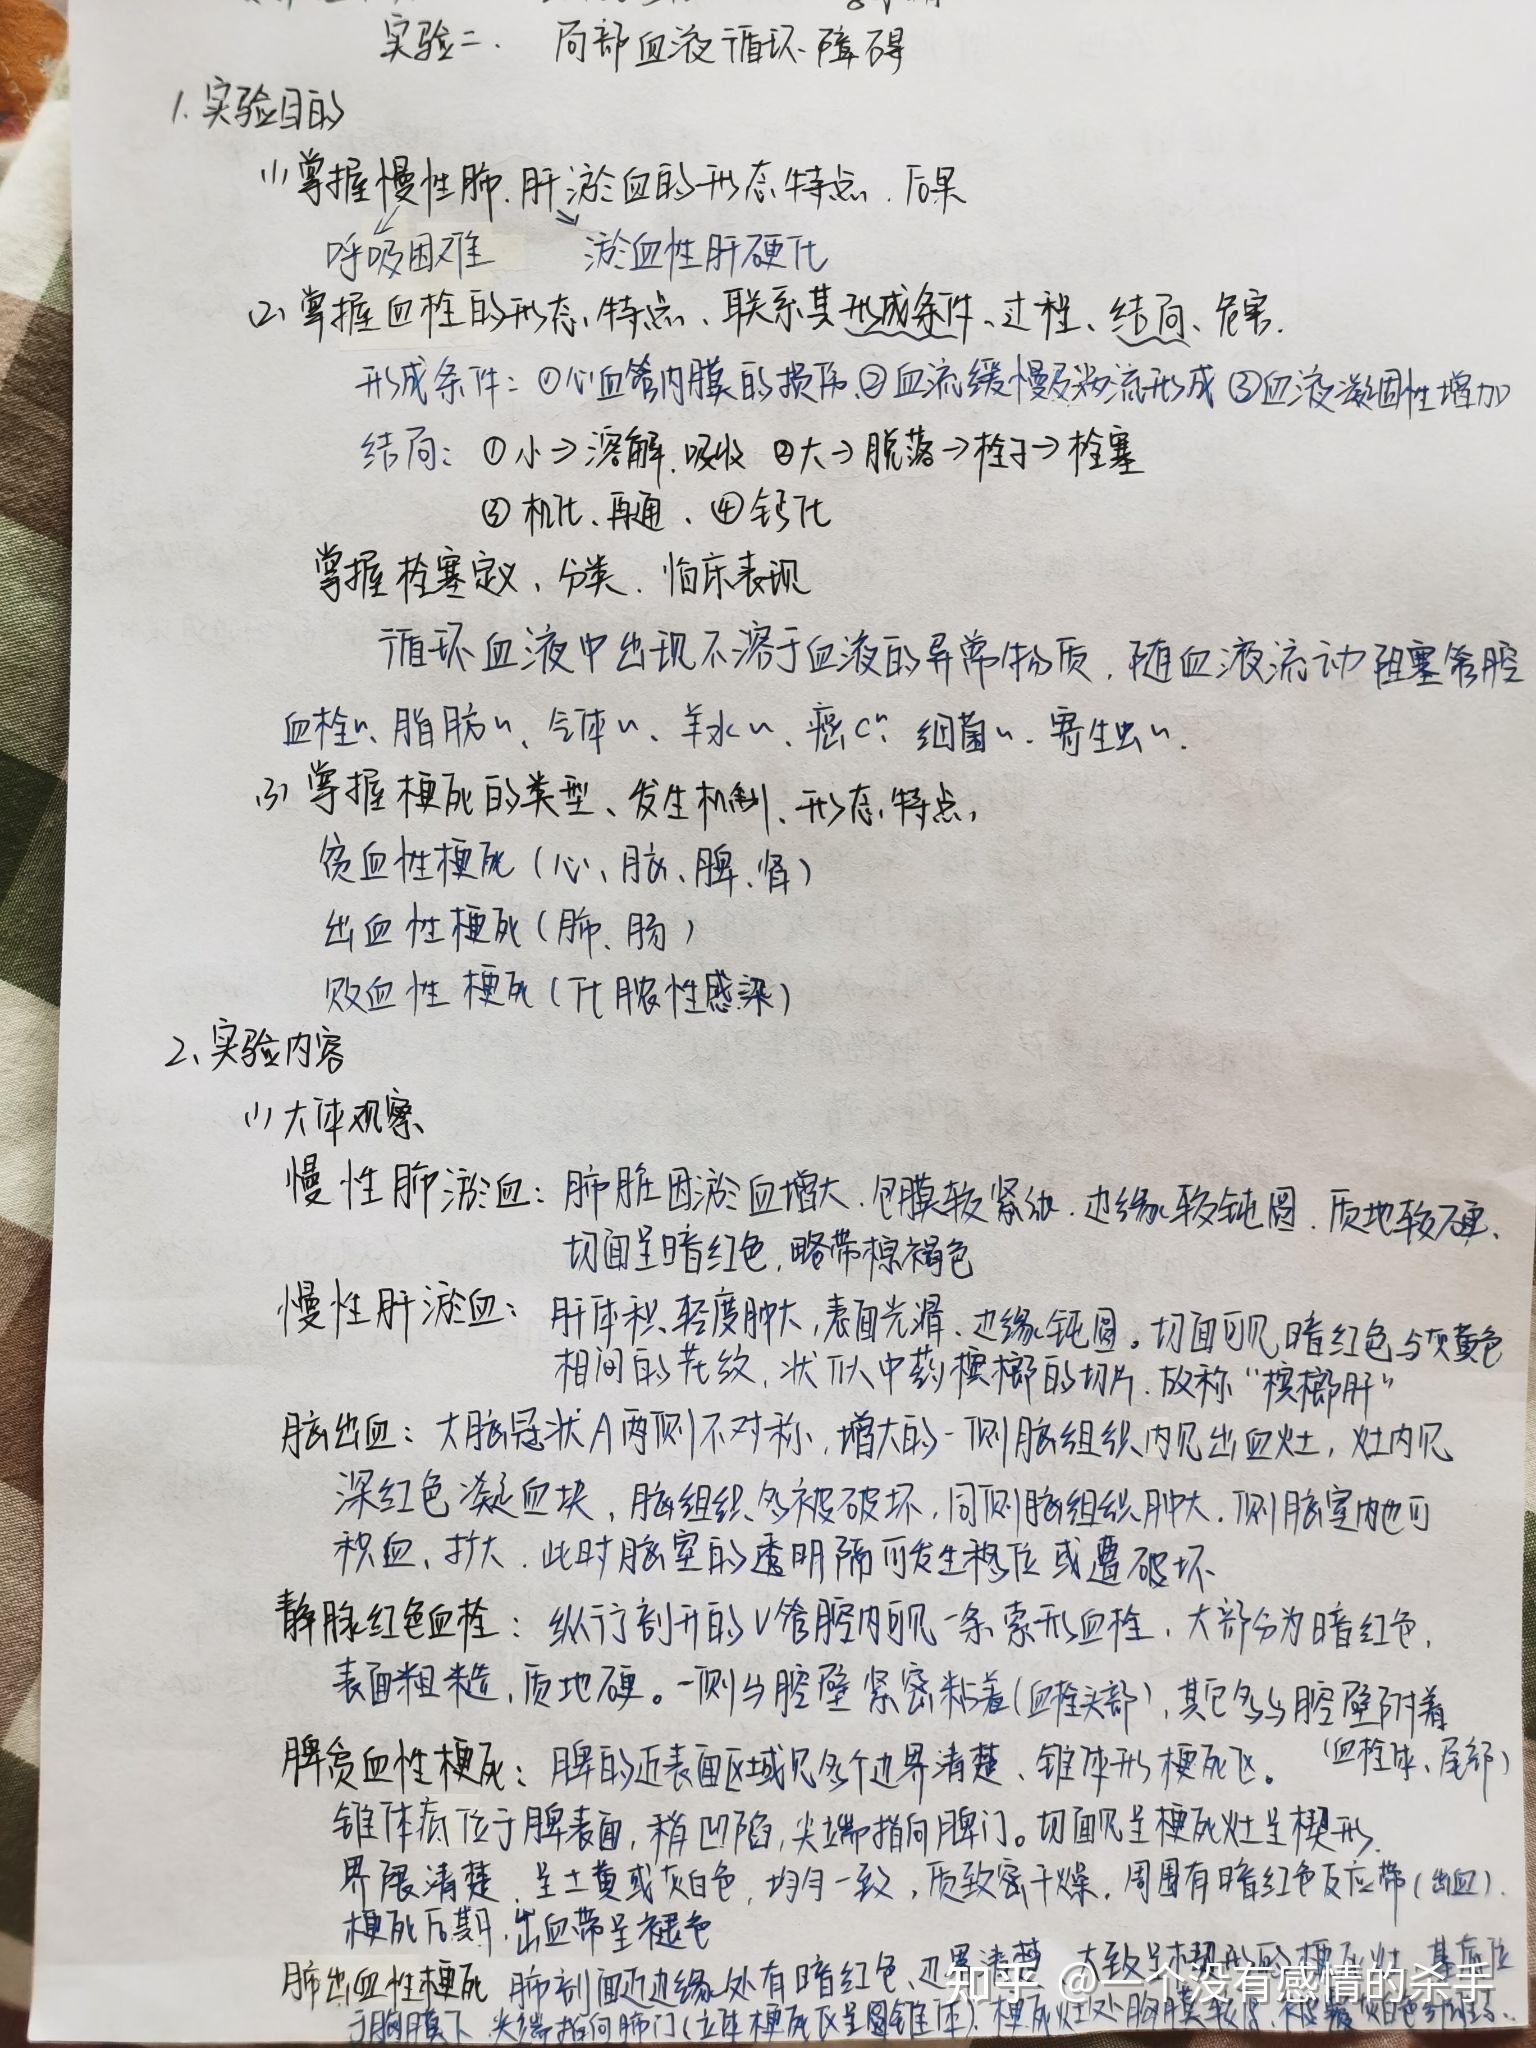 实验二. 局部血液循环障碍
1.实验目的
(1)掌握慢性肺、肝淤血的形态特点、后果
呼吸困难 淤血性肝硬化
(2)掌握血栓的形态特点、联系其形成条件、过程、结局、危害.
形成条件:①心血管内膜的损伤.②血流缓慢及涡流形成 ③血液凝固性增加
结局:①小→溶解.吸收 ②大→脱落→栓子→栓塞
③机化、再通、④钙化
掌握栓塞定义、分类、临床表现
循环血液中出现不溶于血液的异常物质,随血液流动阻塞管腔
血栓〃、脂肪〃、气体〃、羊水〃、癌C〃、细菌〃、寄生虫〃.
(3)掌握梗死的类型、发生机制、形态特点,
贫血性梗死(心、脑、脾、肾)
出血性梗死(肺、肠)
败血性梗死(化脓性感染)
2、实验内容
(1)大体观察
慢性肺淤血:肺脏因淤血增大.包膜较紧张.边缘较钝圆.质地较硬、
切面呈暗红色,略带棕褐色
慢性肝淤血:肝体积轻度肿大,表面光滑、边缘钝圆。切面可见暗红色与灰黄色
相间的花纹,状似中药槟榔的切片.故称"槟榔肝"
脑出血:大脑冠状A两侧不对称,增大的一侧脑组织内见出血灶,灶内见
深红色凝血块,脑组织多被破坏,同侧脑组织肿大.侧脑室内也可
积血、扩大.此时脑室的透明隔可发生移位或遭破坏
静脉红色血栓:纵行剖开的V管腔内可见一条索形血栓,大部分为暗红色,
表面粗糙,质地硬。一侧与腔壁紧密粘着(血栓头部),其它多与腔壁附着
(血栓体、尾部)
脾贫血性梗死:脾的近表面区域见多个边界清楚、锥体形梗死区。
锥体底位于脾表面,稍凹陷,尖端指向脾门。切面见呈梗死灶呈楔形,
界限清楚,呈土黄或灰白色,均匀一致,质致密干燥,周围有暗红色反应带(出血).
梗死后期,出血带呈褐色
肺出血性梗死 肺剖面近边缘处有暗红色、边界清楚 大致呈楔形的梗死灶.基底位
于胸膜下 尖端指向肺门(立体梗死区呈圆锥体).梗死灶处胸膜
知乎 @一个没有感情的杀手